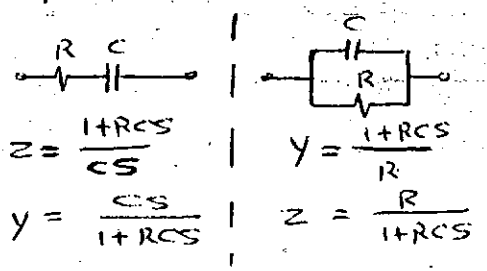 R C
Z = 1+RCS / CS
y = CS / 1+RCS
C
R
y = 1+RCS / R
Z = R / 1+RCS